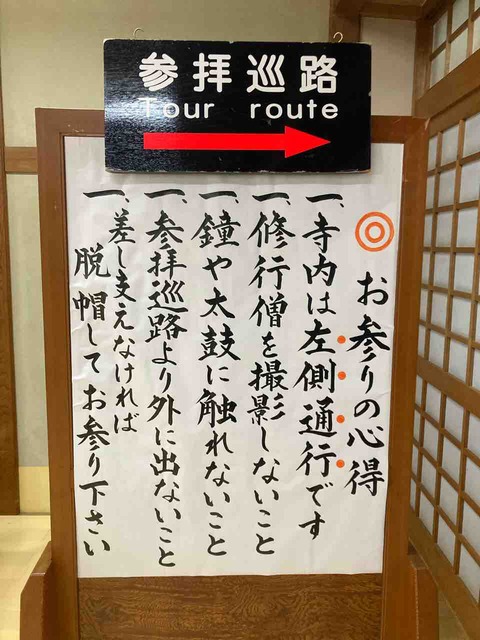 参拝巡路
Tour route
◎お参りの心得
一、寺内は左側通行です
一、修行僧を撮影しないこと
一、鐘や太鼓に触れないこと
一、参拝巡路より外に出ないこと
一、差し支えなければ
脱帽してお参り下さい